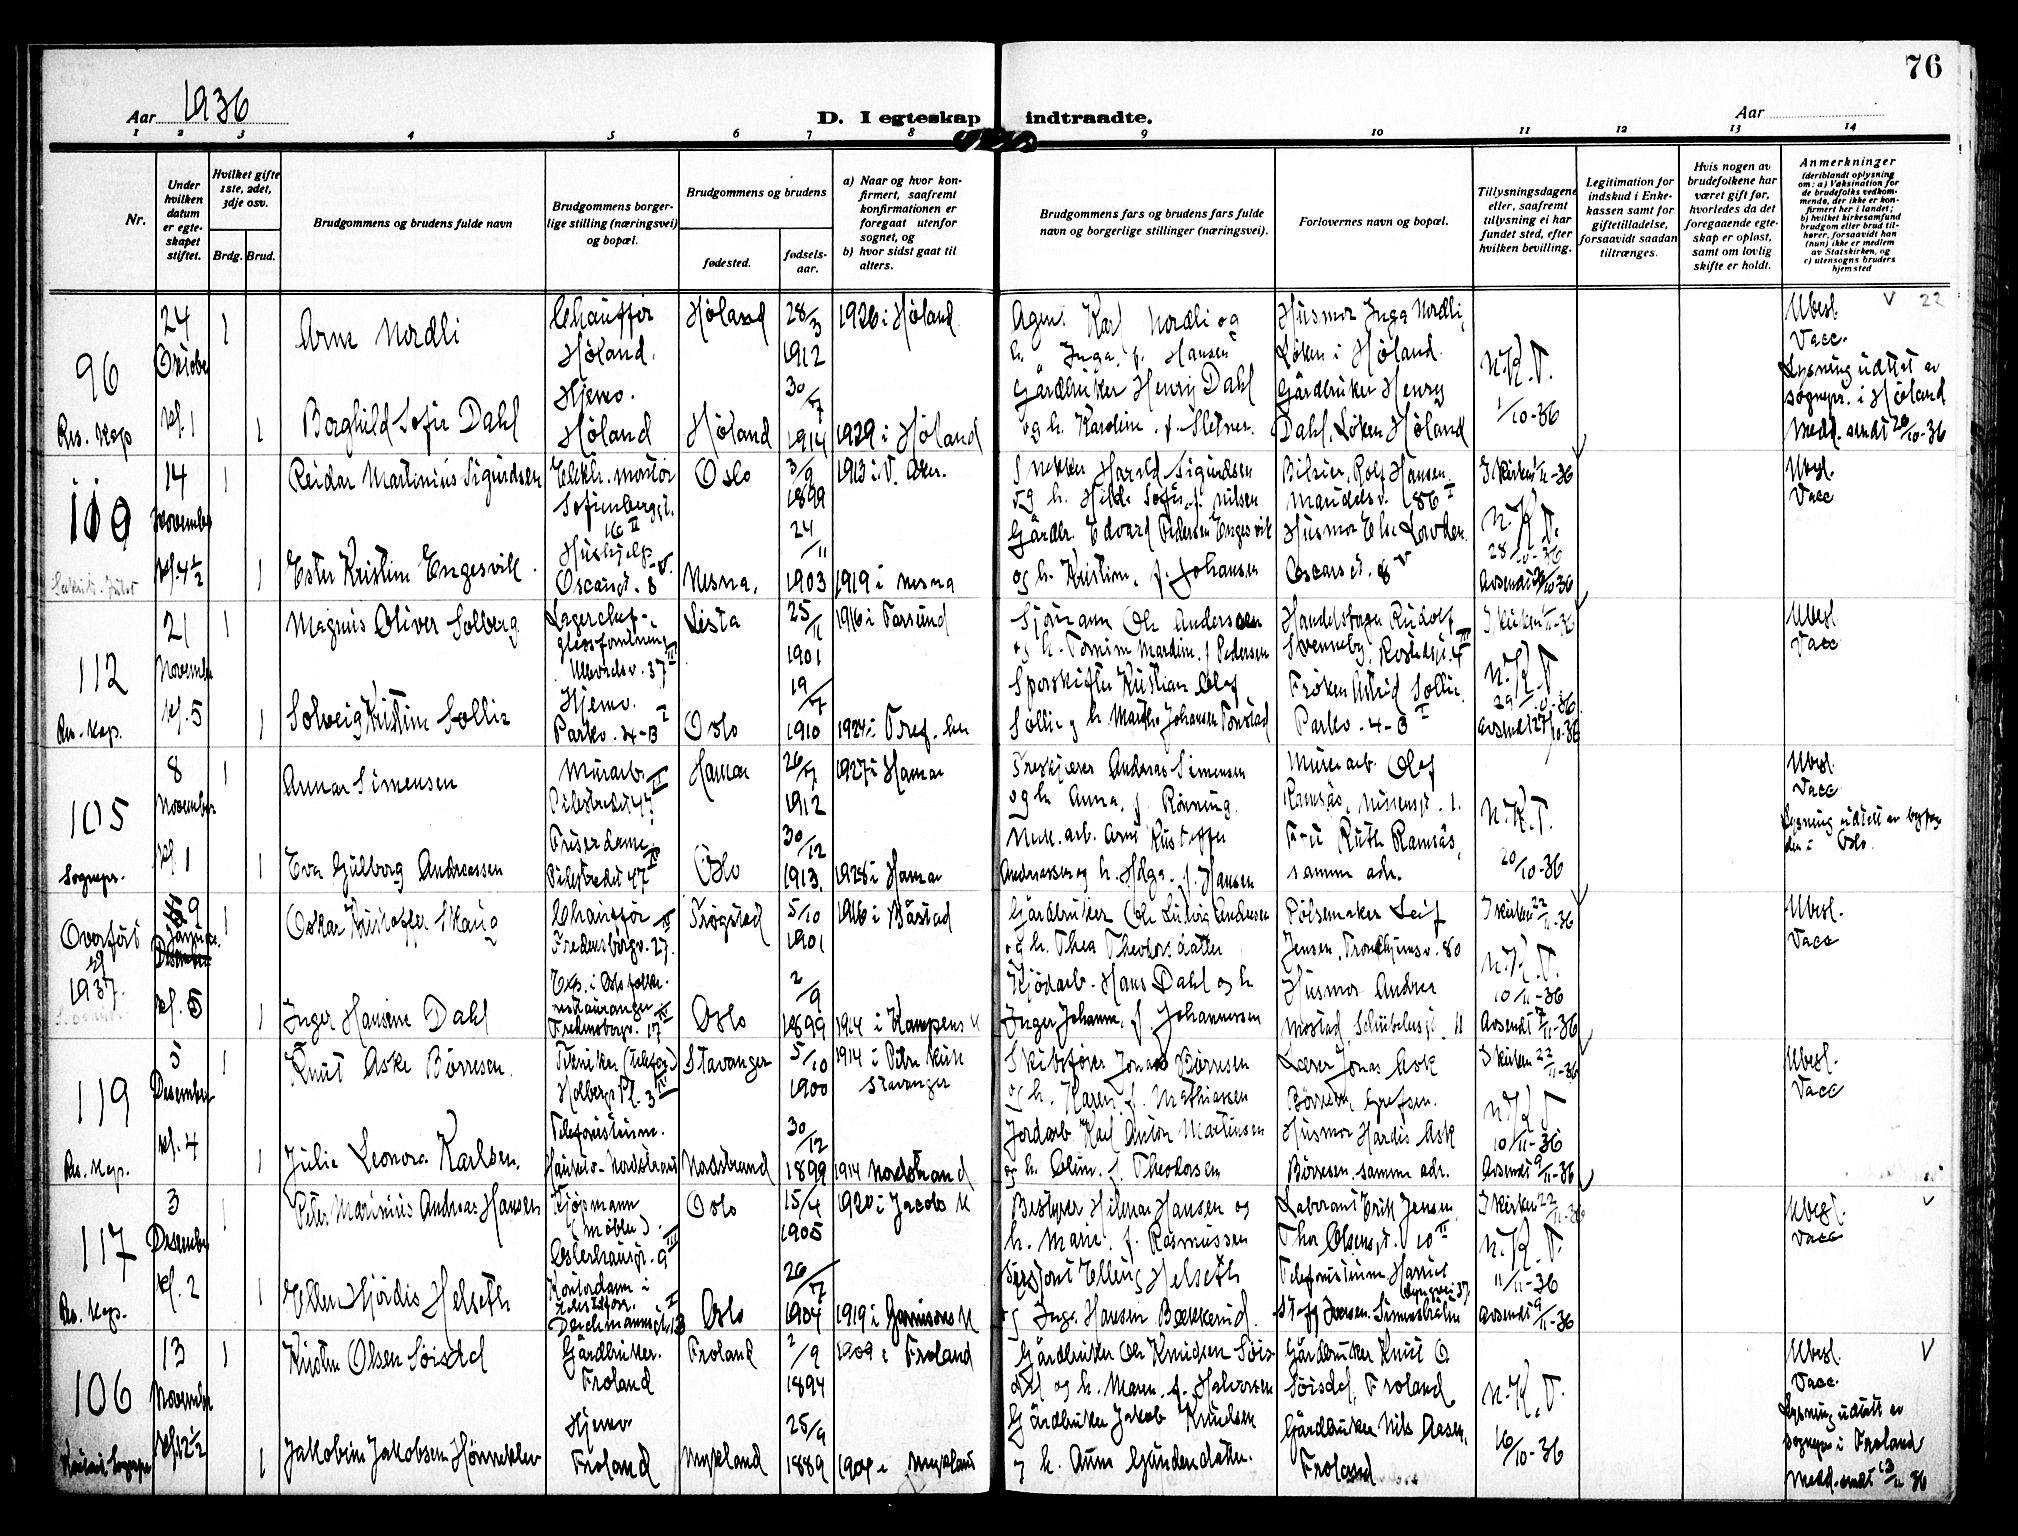 76
Aar 1936
D. I egteskap indtraadte.
Aar
1 2 3 4 5 6 7 8 9 10 11 12 13 14
Nr.
Under hvilken datum er egteskapet stiftet.
Hvilket gifte 1ste, 2det, 3dje osv.
Brdg. Brud.
Brudgommens og brudens fulde navn
Brudgommens borgerlige stilling (næringsvei) og bopæl.
Brudgommens og brudens
fødested.
fødselsaar.
a) Naar og hvor konfirmert, saafremt konfirmationen er foregaat utenfor sognet, og
b) hvor sidst gaat til alters.
Brudgommens fars og brudens fars fulde navn og borgerlige stillinger (næringsvei).
Forlovernes navn og bopæl.
Tillysningsdagene eller, saafremt tillysning ei har fundet sted, efter hvilken bevilling.
Legitimation for indskud i Enkekassen samt for giftetilladelse, forsaavidt saadan tiltrænges.
Hvis nogen av brudefolkene har været gift før, hvorledes da det foregaaende egteskap er opløst, samt om lovlig skifte er holdt.
Anmerkninger (deriblandt oplysning om: a) Vaksination for de brudefolks vedkommende, der ikke er konfirmert her i landet; b) hvilket kirkesamfund brudgom eller brud tilhører, forsaavidt han (hun) ikke er medlem av Statskirken, og c) utensogns bruders hjemsted
96
24 Oktober kl. 1
Res. Kap
1 Arne Nordli
Chauffør Høland.
Høland
28/3 1912
1926 i Høland.
Agent Karl Nordli og h. Inga f. Hansen
Husmor Inga Nordli, Løken i Høland.
N.K.T. 1/10-36
Ubesl. V 22
Vacc.
Lysning udstet av sognepr. i Høland
Medd. sendt 26/10-36
1 Borghild Sofie Dahl
Hjemv. Høland
Høland
30/7 1914
1929 i Høland
Gårdbruker Henry Dahl og h. Karoline f. Sletner.
Gårdbruker Henry Dahl, Løken Høland
110
14 November kl. 4½
1 Reidar Martinius Sigurdsen
Elektr. montør Sofienberggt. 16 II
Oslo
3/9 1899
1913 i V. Aker.
Snekker Harald Sigurdsen og h. Hilda Sofie f. Nilsen
Bilsier, Rolf Hansen. Maridalsv. 186 I
I kirken 1/11-36
N.K.T. 28/10-36
Avsendt 29/10-36
Ubesl.
Vacc
1 Ester Kristine Engesvik.
Hushjelp Oscarsgt. 8 V.
Nesna.
24/11 1903
1919 i Nesna
Gårdbr. Edvard Pedersen Engesvik og h. Kristine, f. Johansen
Husmor Else Lovden. Oscarsgt. 8 V
112
21 November kl. 5
Res. Kap.
1 Magnus Oliver Solberg
Lagerchef-glassforretning Ullevålsv. 37 III
Lista
25/11 1901
1916 i Farsund
Sjømann Ole Andersen og h. Tomine Mardine f. Pedersen
Handelsborger Rudolf Svenneby, Rostedsgt. 4 III
I kirken 1/11-36
N.K.T. 29/10-36
Avsendt 27/10-36
Ubesl.
Vacc
1 Solveig Kristine Sollie
Hjemv. Parkv. 4-B I
Oslo
19/7 1910
1924 i Tref. ki
Sporskifter Kristian Olaf Sollie og h. Marthe Johansen Tonstad
Frøken Astrid Sollie. Parkv. 4-B I
105
8 November kl. 1
Sognepr.
1 Annar Simensen
Murarb. Pilestredet 47 II
Hamar
26/7 1912
1927 i Hamar
Treskjærer Andreas Simensen og h. Anna, f. Rønning.
Murerarb. Olaf Ramsås, Nissensgt. 1.
N.K.T. 20/10-36
Ubesl.
Vacc
Lysning udstett av byfogden i Oslo.
1 Eva Gulborg Andreassen
Friserdame. Pilestredet 47 II
Oslo
30/12 1913.
1928 i Hamar
Mek. arb. Arne Kristoffer Andreassen og h. Helga f. Hansen
Fru Ruth Ramsås, samme adr.
Overført til 1937.
9 Januar Desember kl. 5
1 Oskar Kristoffer Skaug
Chauffør Fredensborgv. 27. II
Trøgstad
5/10 1901
1916 i Båstad
Gårdbruker Ole Ludvig Andresen og h. Thea Theodorsdatter
Pølsemaker Leif Jensen, Trondhjemsv. 80
I kirken 22/11-36
N.K.T. 10/11-36
Avsendt 9/11-36
Ubesl.
Vacc
1 Inger Hansine Dahl
Eks. i Oslo folkerestauranger Fredensborgv. 17 IV
Oslo
2/9 1899
1914 i Kampens K
Kjødarb. Hans Dahl og h Inger Johanne, f. Johannessen
Husmor Andrea Mostad, Schübelersgt. 11
119
5 Desember kl. 4
Res. Kap.
1 Knut Aske Børresen.
Tekniker (Telefon.) Holbergs Pl. 3 IV
Stavanger
5/10 1900
1914 i Petri Kirke Stavanger
Skibsfører Jonas Børresen og h. Karen f. Mathiassen
Lærer Jonas Ask Børresen Grefsen.
I kirken 22/11-36
N.K.T. 10/11-36
Avsendt 9/11-36
Ubesl.
Vacc
1 Julie Leonora Karlsen.
Telefonistinne. Nordstrand
Nordstrand
30/12 1899
1914 Nordstrand
Jordarb. Karl Anton Martinsen og h. Oline f. Theodorsen
Husmor Hardis Ask Børresen. samme adr.
117
3 Desember kl. 2
Res. Kap.
1 Peter Marinius Andreas Hansen
Kjøpmann (Møbler). Osterhausgt. 9 III
Oslo
15/4 1905
1920 i Jacobs K
Bestyrer Hilmar Hansen og h. Marie f. Rasmussen
Laborant Erik Jensen, Thor Olsensgt. 10 II
I kirken 22/11-36
N.K.T. 11/11-36
Avsendt 9/11-36
Ubesl. V
Vacc
1 Ellen Hjørdis Helseth
Kontordame i Deichmannsgt. 13 I
Oslo
26/7 1904
1919 i Garnisons K
Sersjant Elling Helseth og Inga Hansen Bækkerud.
Telefonistinne Harriet
106
13 November kl. 12½
1 Kristen Olsen Søisdal
Gårdbruker. Froland
Froland
2/9 1894
1909 i Froland
Gårdbruker Ole Knudsen Søisdal og h. Maren f. Halvorsen
Gårdbruker Knut O. Søisdal, Froland
N.K.T. 16/10-36
Ubesl. V
Vacc.
Lysning udstett av sognepr i Froland
Medd. sendt 13/11 36
1 Jakobine Jakobsen Hønneklev
Hjemv Froland
Mykland
25/9 1889
1904 i Mykland
Gårdbruker Jakob Knudsen og h. Anne Gundersdatter.
Gårdbruker Nils Aasen, Froland